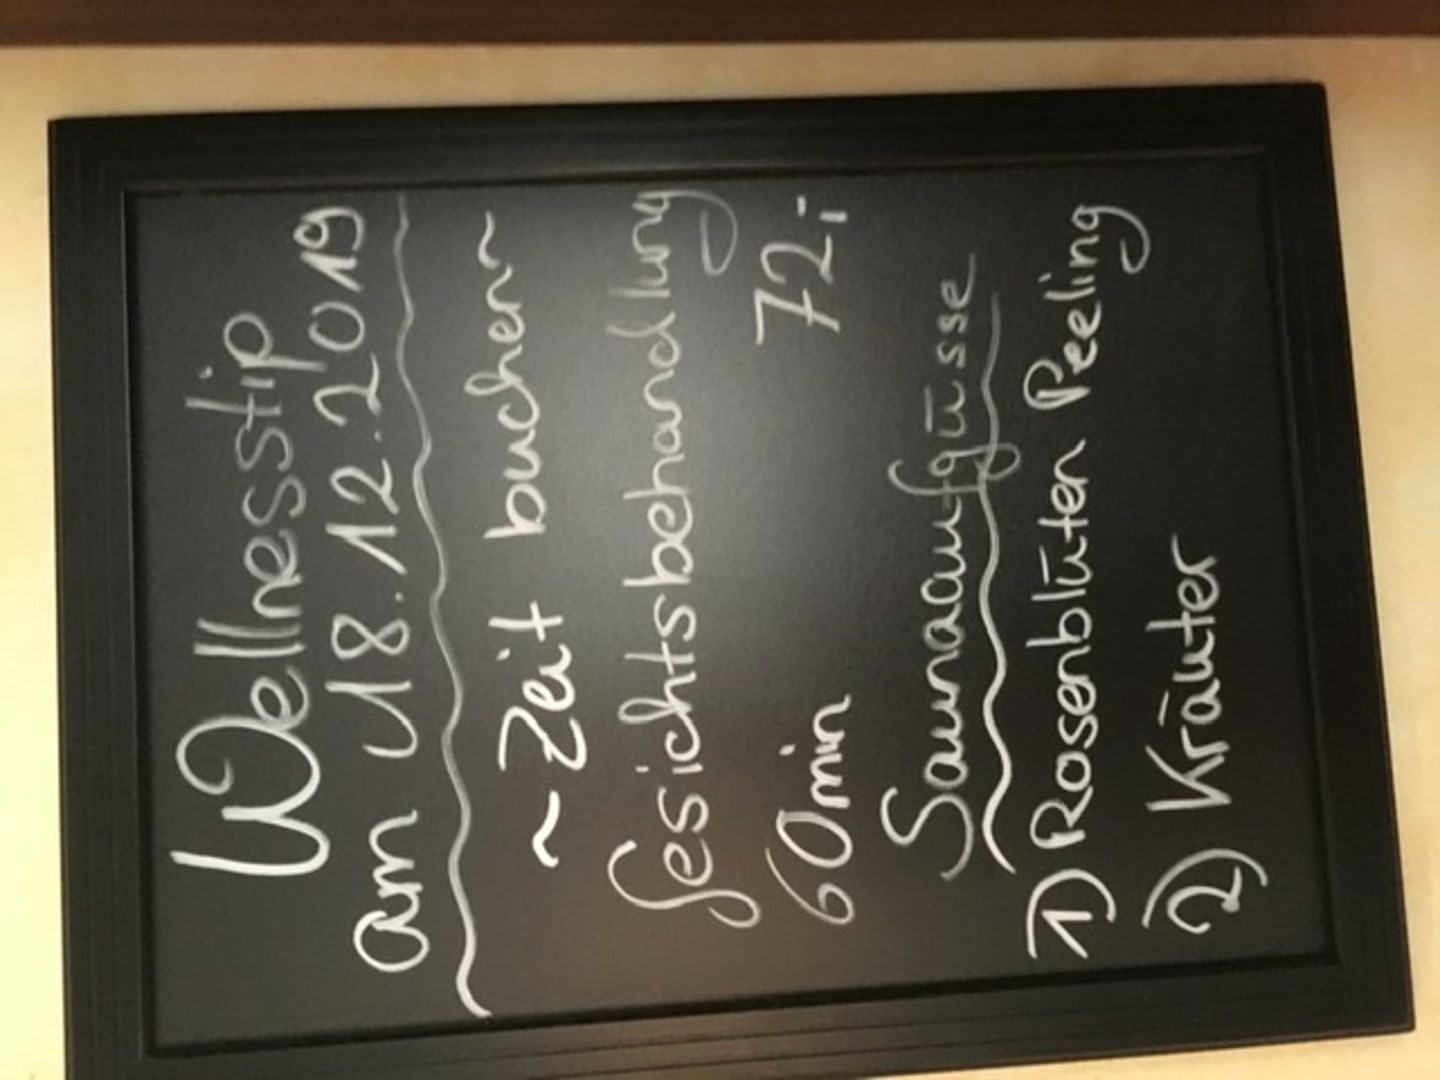 Wellnesstip
am 18.12.2019
~ Zeit buchen ~
Gesichtsbehandlung
60min 72,-
Saunaaufgüsse
1) Rosenblüten Peeling
2) Kräuter